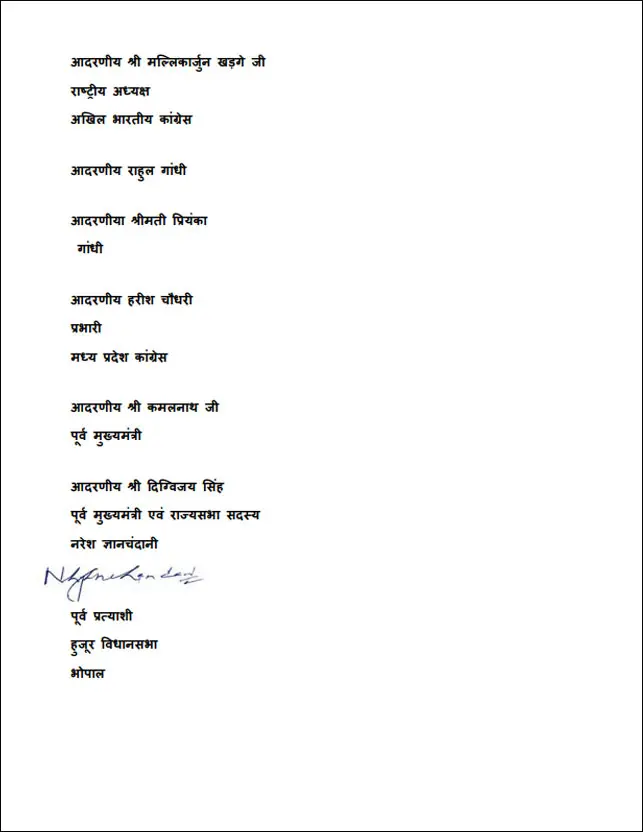 आदरणीय श्री मल्लिकार्जुन खड़गे जी
राष्ट्रीय अध्यक्ष
अखिल भारतीय कांग्रेस
आदरणीय राहुल गांधी
आदरणीया श्रीमती प्रियंका
गांधी
आदरणीय हरीश चौधरी
प्रभारी
मध्य प्रदेश कांग्रेस
आदरणीय श्री कमलनाथ जी
पूर्व मुख्यमंत्री
आदरणीय श्री दिग्विजय सिंह
पूर्व मुख्यमंत्री एवं राज्यसभा सदस्य
नरेश ज्ञानचंदानी
पूर्व प्रत्याशी
हुजूर विधानसभा
भोपाल